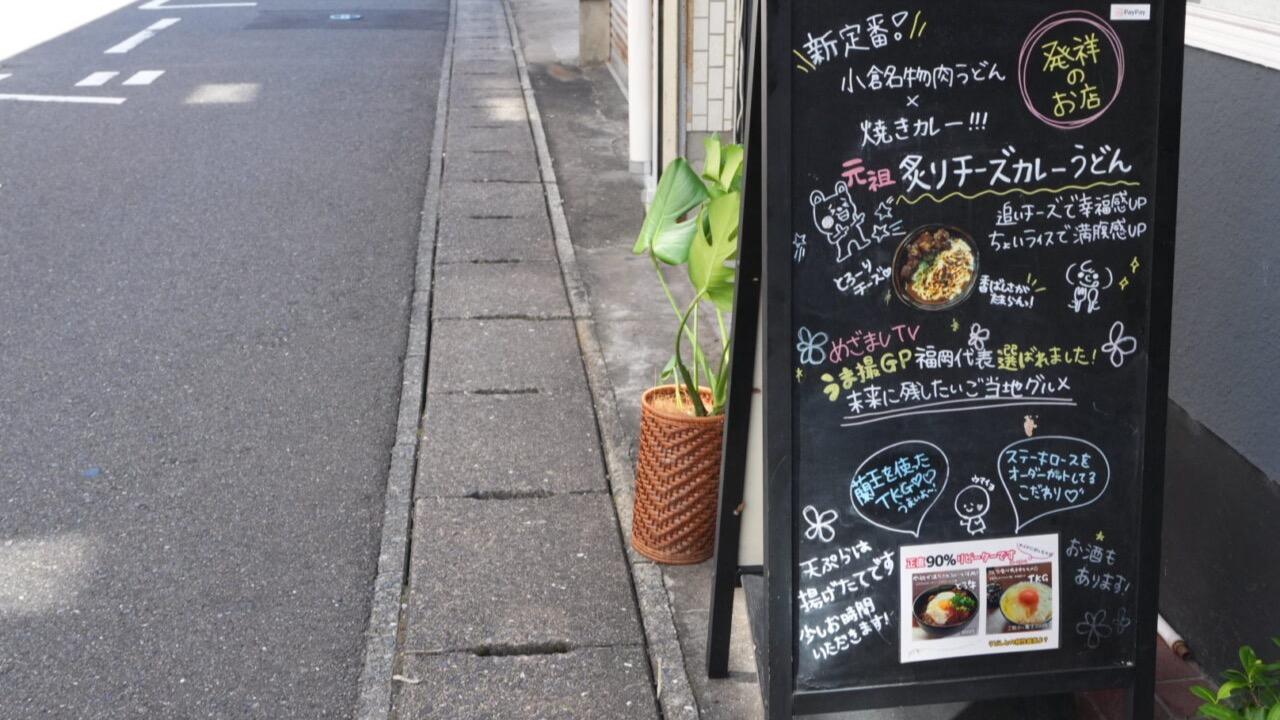 PayPay
新定番!
小倉名物肉うどん
×
焼きカレー!!!
発祥
の
お店
元祖 炙りチーズカレーうどん
追いチーズで幸福感UP
ちょいライスで満腹感UP
とろーり
チーズ
香ばしさが
たまらん!
めざましTV
うま撮GP 福岡代表 選ばれました!
未来に残したいご当地グルメ
蘭王を使った
TKG♡♡
うまいよ〜!
ウマイヨ
ステーキロースを
オーダーカットしてる
こだわり♡
天ぷらは
揚げたてです
少しお時間
いただきます!
正直90%リピーターです
TKG
お酒も
あります!